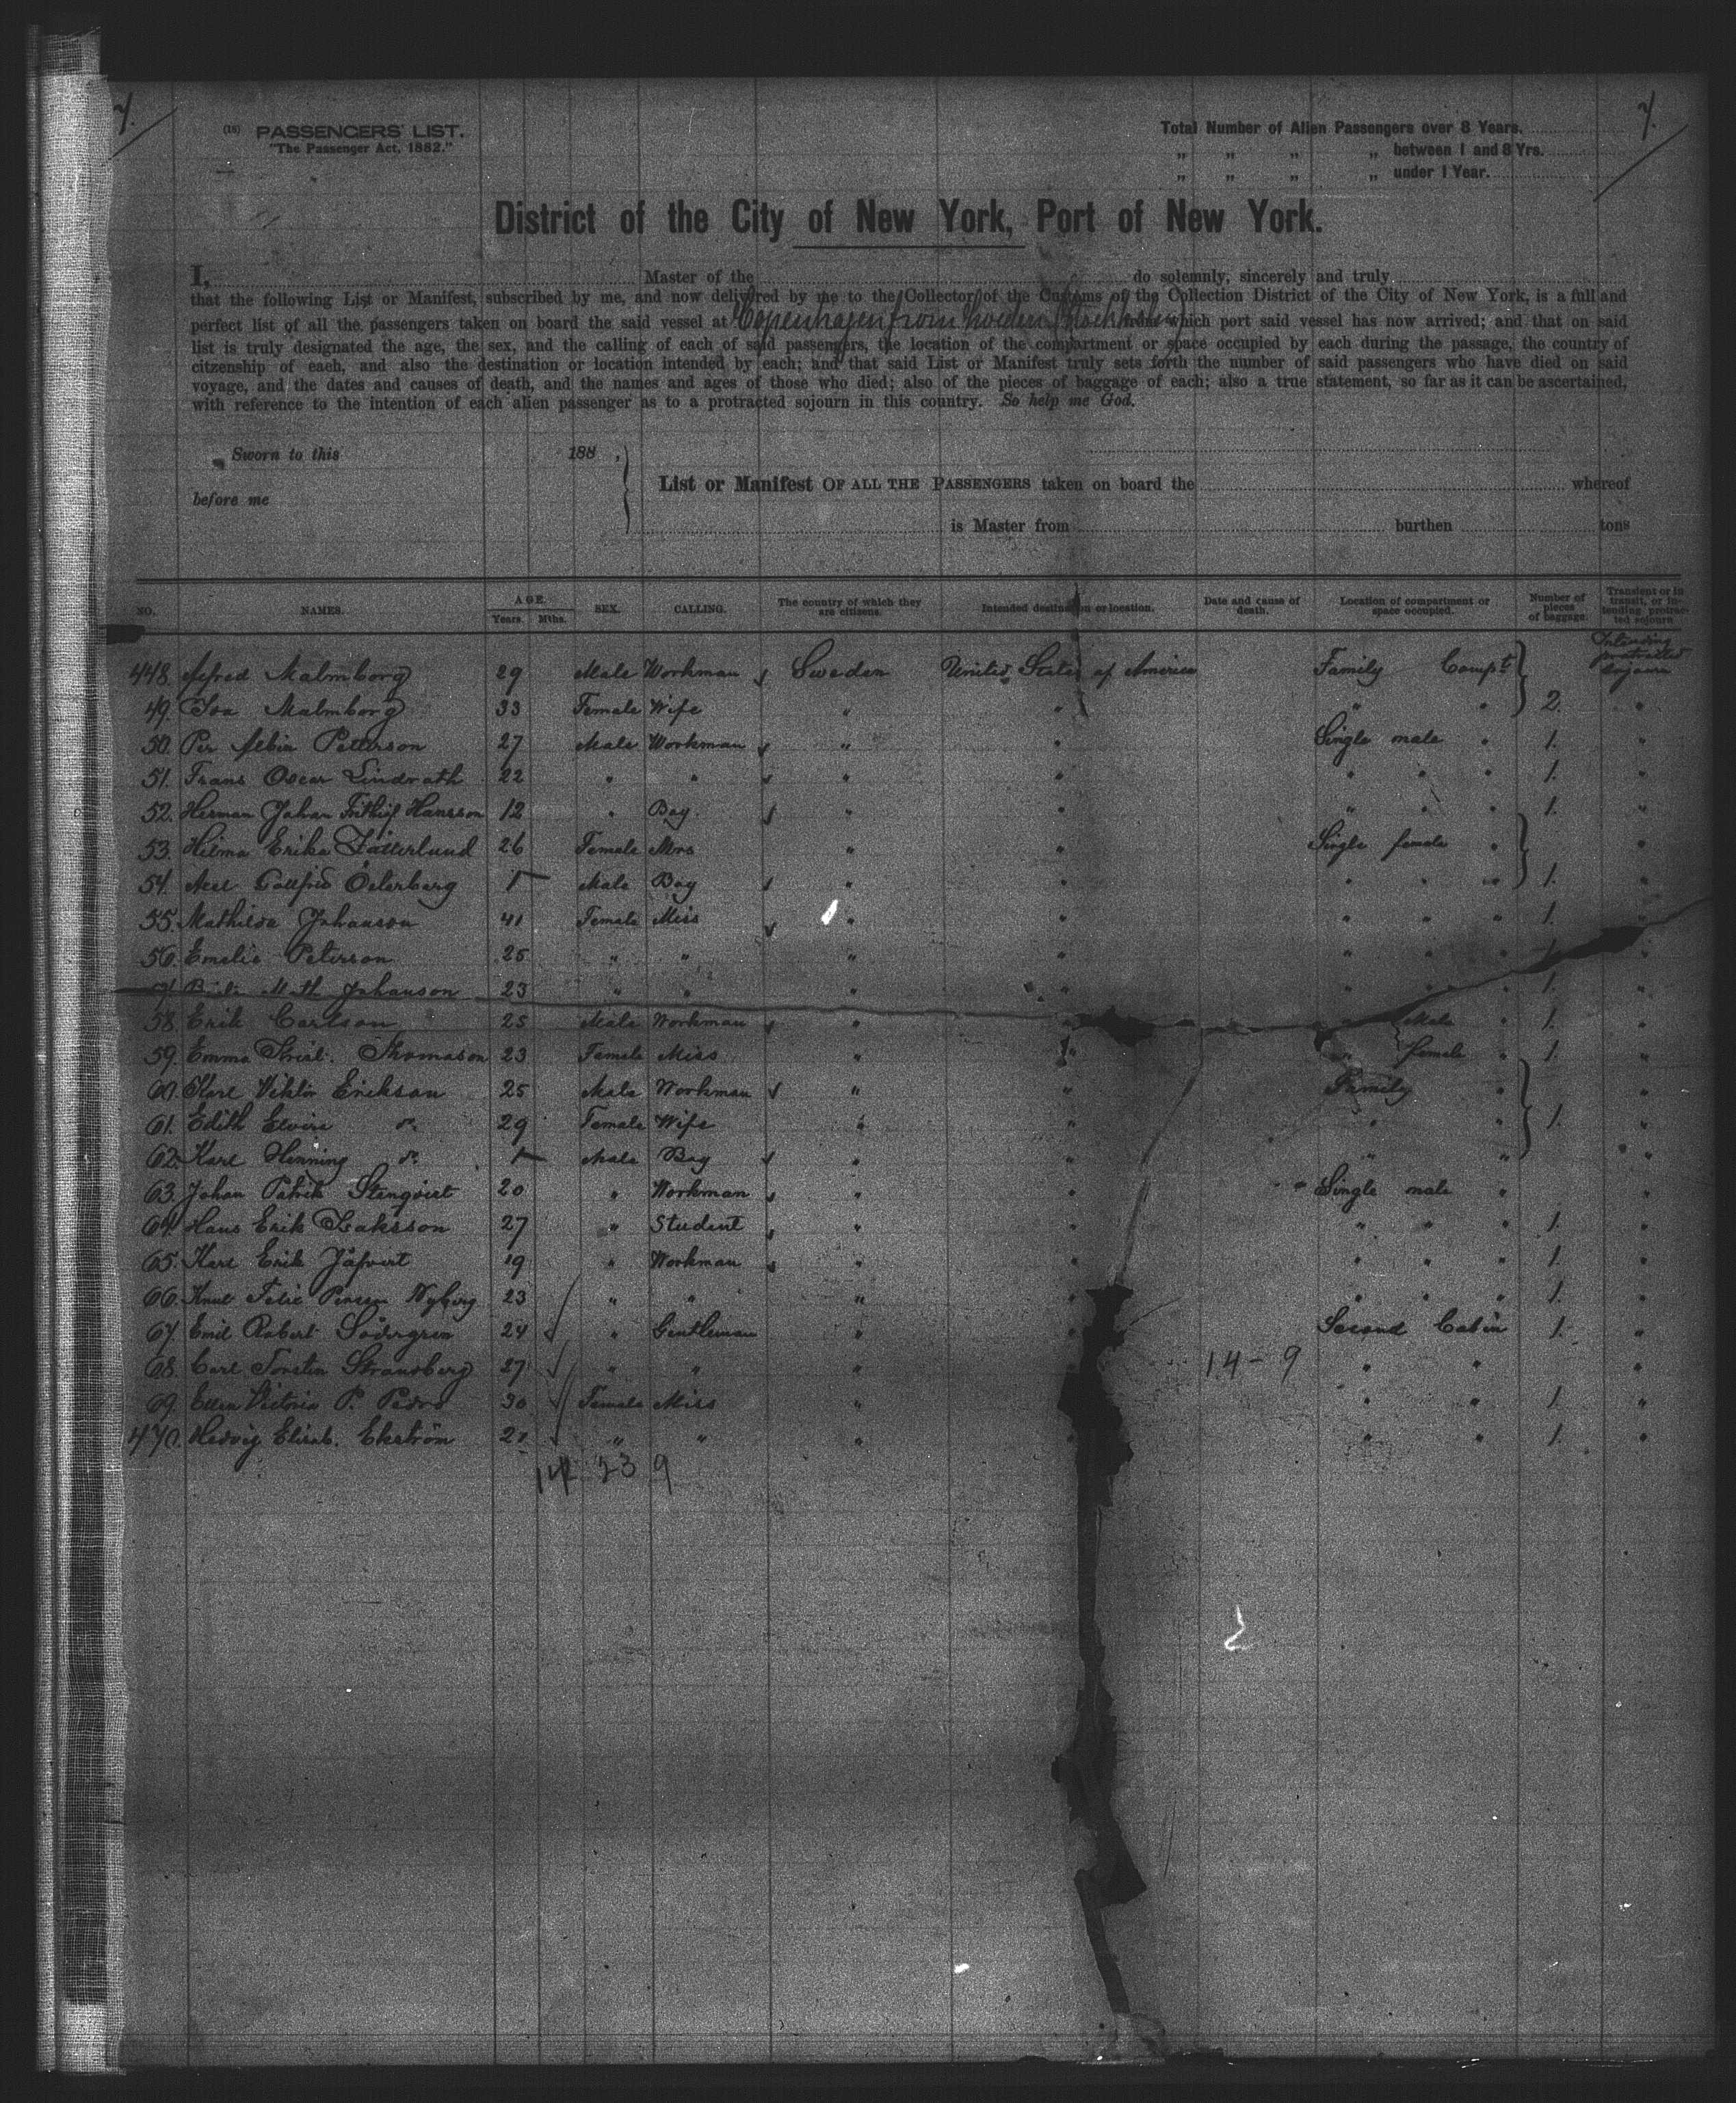 7. 7.
(18) PASSENGERS' LIST.
"The Passenger Act, 1882."
Total Number of Alien Passengers over 8 Years.
„ „ „ „ between 1 and 8 Yrs.
„ „ „ „ under 1 Year.
District of the City of New York, Port of New York.
I, Master of the do solemnly, sincerely and truly
that the following List or Manifest, subscribed by me, and now delivered by me to the Collector of the Customs of the Collection District of the City of New York, is a full and
perfect list of all the passengers taken on board the said vessel at Copenhagen from Sweden Stockholm from which port said vessel has now arrived; and that on said
list is truly designated the age, the sex, and the calling of each of said passengers, the location of the compartment or space occupied by each during the passage, the country of
citzenship of each, and also the destination or location intended by each; and that said List or Manifest truly sets forth the number of said passengers who have died on said
voyage, and the dates and causes of death, and the names and ages of those who died; also of the pieces of baggage of each; also a true statement, so far as it can be ascertained,
with reference to the intention of each alien passenger as to a protracted sojourn in this country. So help me God.
Sworn to this 188 ,
before me
List or Manifest OF ALL THE PASSENGERS taken on board the whereof
is Master from burthen tons
NO. NAMES. AGE. Years. Mths. SEX. CALLING. The country of which they are citizens. Intended destination or location. Date and cause of death. Location of compartment or space occupied. Number of pieces of baggage. Transient or in transit, or intending protracted sojourn
448. Alfred Malmborg 29 Male Workman Sweden United States of America Family Compt Intending protracted sojourn
49. Malmborg 33 Female Wife " " " " 2. "
50. Per Albin Petterson 27 Male Workman " " Single male " 1. "
51. Frans Oscar Lindrath 22 " " " " " " " 1. "
52. Herman Johan Frithiof Hansson 12 " Boy. " " " " " 1. "
53. Hilma Erika 26 Female Mrs " " Single female " "
54. Axel Gottfrid Österberg 1 Male Boy " " " " " 1. "
55. Mathilda Johanson 41 Female Miss " " " " " 1. "
56. Emelie Peterson 25 " " " " " " " 1. "
Math Johanson 23 " " " " " " " 1. "
58. Erik Carlson 25 Male Workman " " " Male " 1. "
59. Emma Thomason 23 Female Miss " " " female " 1. "
60. Karl Viktor Erikson 25 Male Workman " " Family " "
61. Edith Elvira do. 29 Female Wife " " " " 1. "
62. Karl Henning do. 1 Male Boy " " " " "
63. Johan Patrik Stenqvist 20 " Workman " " Single male " "
64. Hans Erik 27 " Student " " " " " 1. "
65. Karl Erik 19 " Workman " " " " " 1. "
66. Knut Felix Nyberg 23 " " " " " " " 1. "
67. Emil Robert Södergren 24 " Gentleman " " Second Cabin 1. "
68. Carl Torsten Strandberg 27 " " " " 14-9 " " "
69. Ellen Victoria P. 30 Female Miss " " " " 1. "
470. Hedvig Elisab. Ekström 2 " " " " " " 1. "
14 23 9